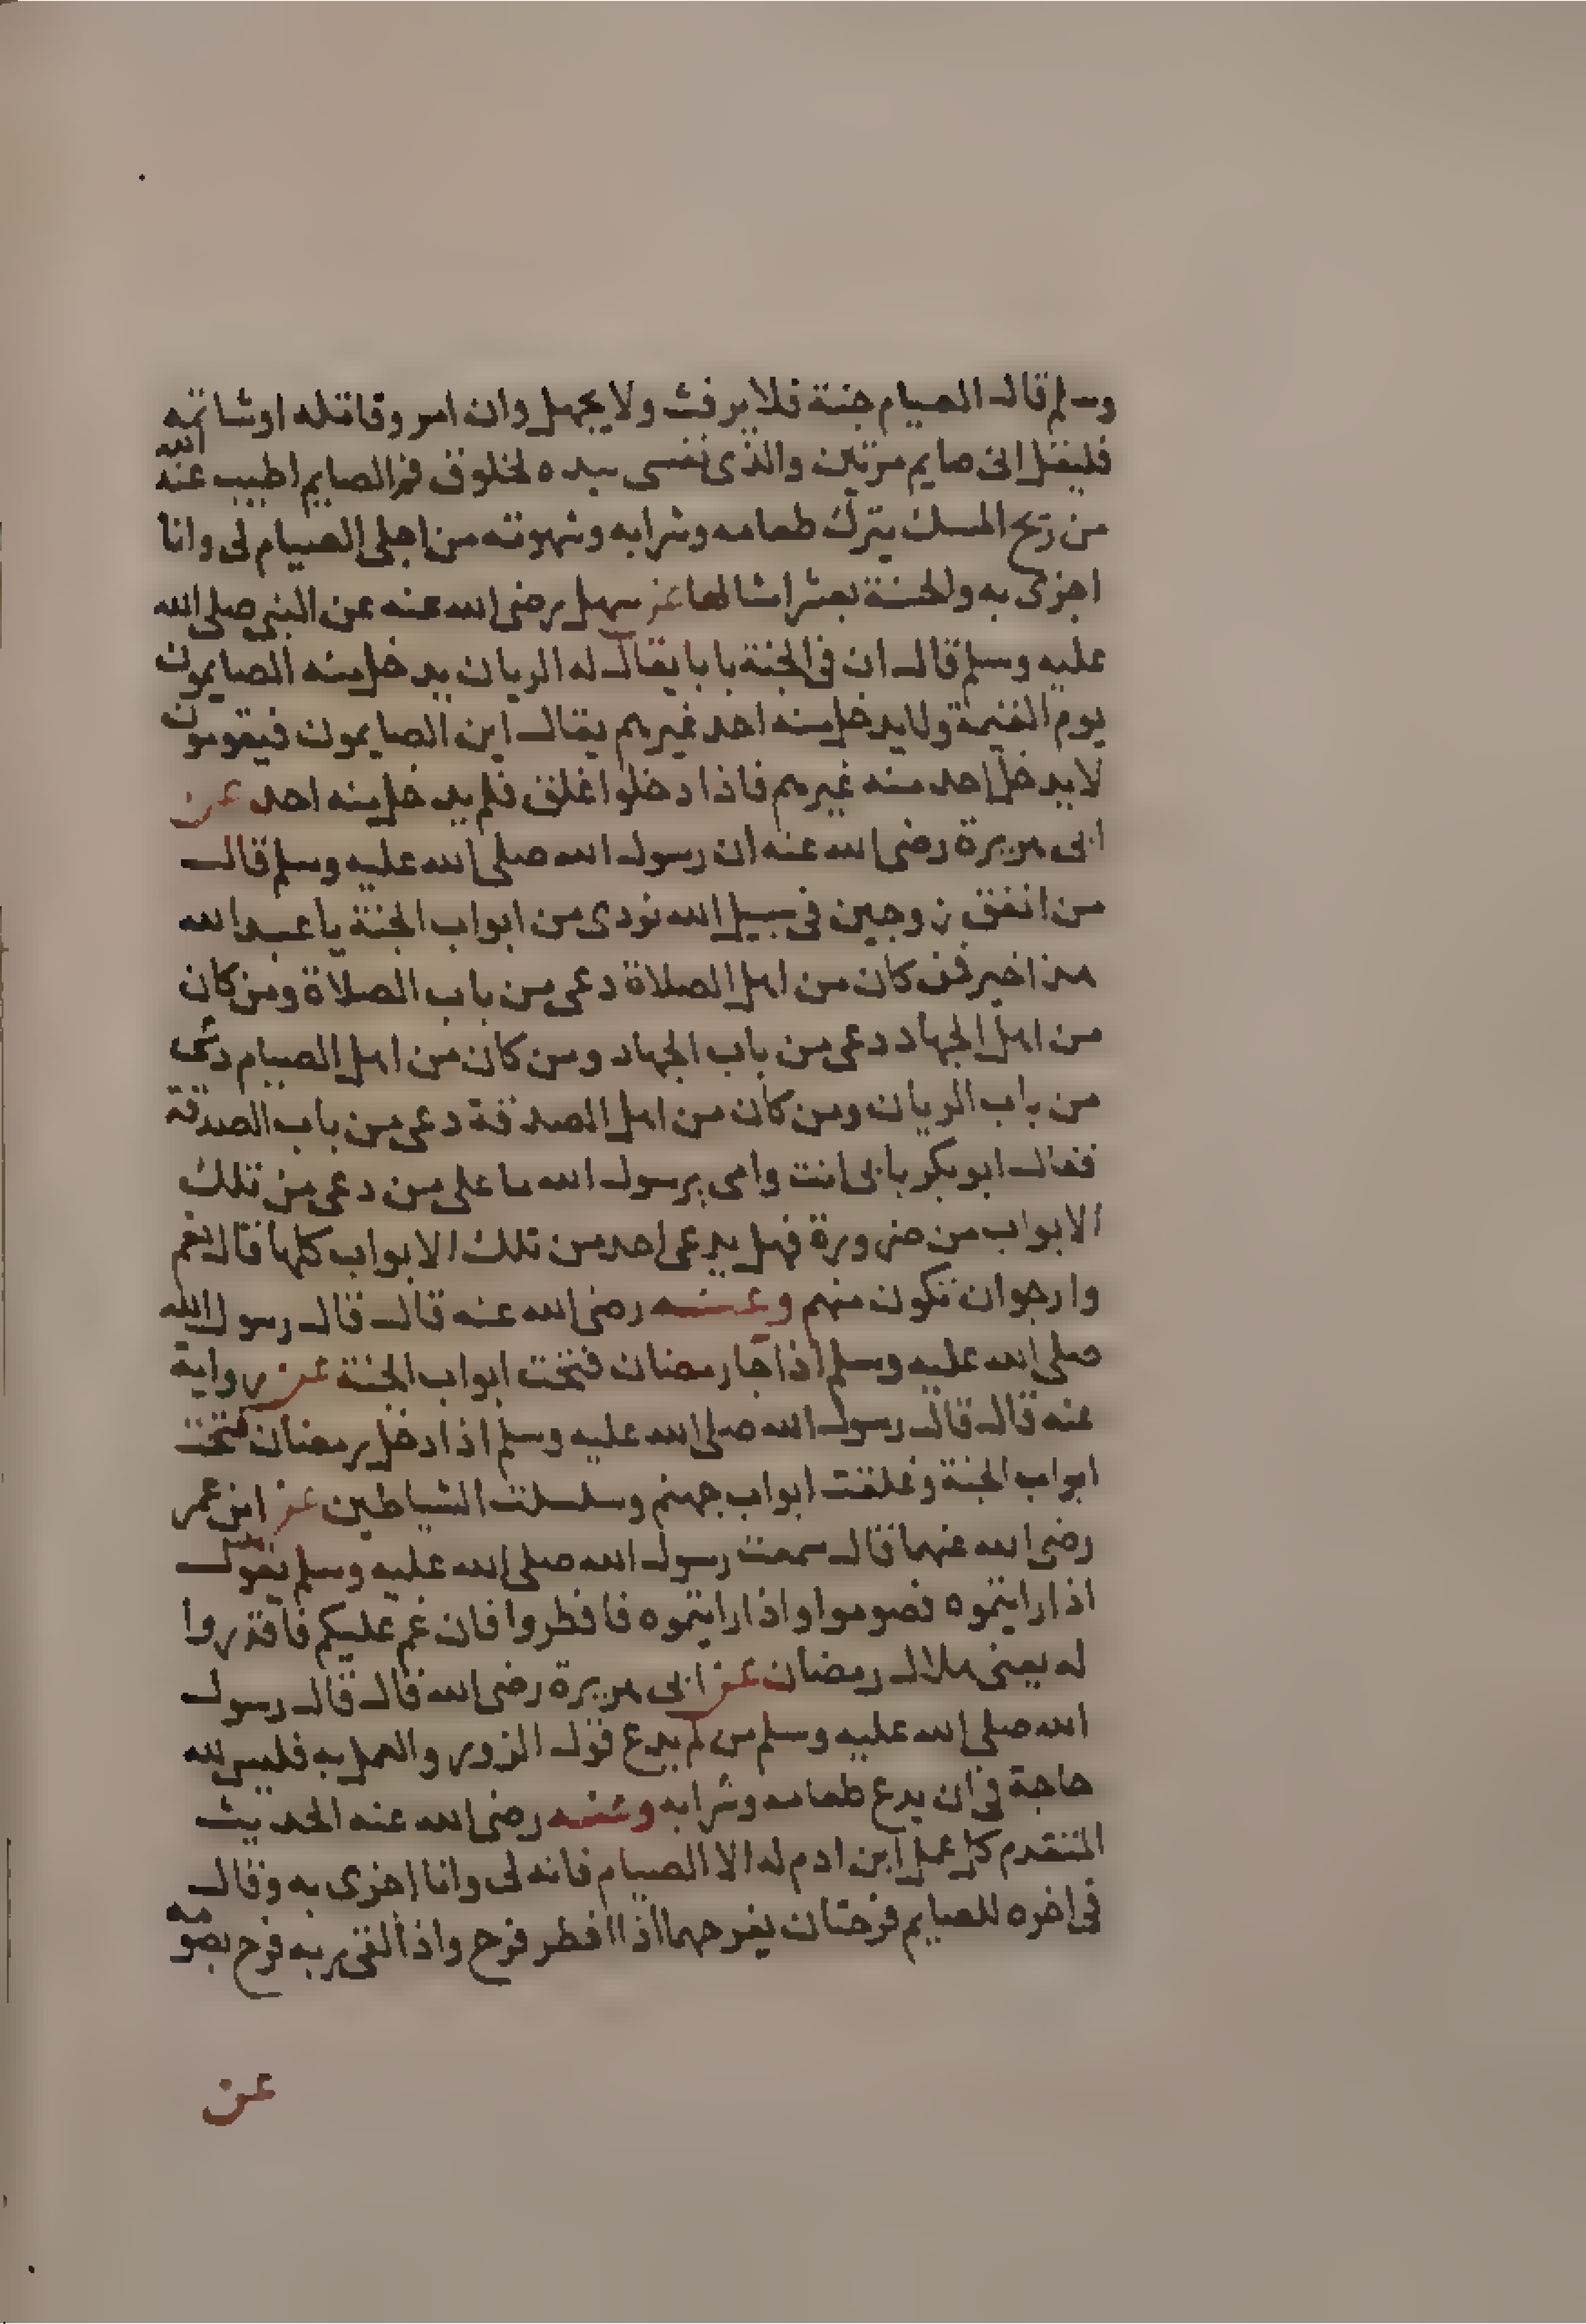 وسلم قال الصيام جنة فلا يرفث ولا يجهل وان امر وقاتله اوشاتمه
فليقل انى صايم مرتين والذى نفسى بيده لخلوف فم الصايم اطيب عند الله
من ريح المسك يترك طعامه وشرابه وشهوته من اجلى الصيام لى وانا
اجزى به والحسنة بعشر امثالها عن سهل رضى الله عنه عن النبى صلى الله
عليه وسلم قال ان فى الجنة بابا يقال له الريان يدخل منه الصايمون
يوم القيمة ولا يدخل منه احد غيرهم يقال اين الصايمون فيقومون
لا يدخل احد منه غيرهم فاذا دخلوا اغلق فلم يدخل منه احد عن
ابى هريرة رضى الله عنه ان رسول الله صلى الله عليه وسلم قال
من انفق زوجين فى سبيل الله نودى من ابواب الجنة يا عبد الله
هذا خير فمن كان من اهل الصلاة دعى من باب الصلاة ومن كان
من اهل الجهاد دعى من باب الجهاد ومن كان من اهل الصيام دعى
من باب الريان ومن كان من اهل الصدقة دعى من باب الصدقة
فقال ابو بكر بابى انت وامى يرسول الله ما على من دعى من تلك
الابواب من ضرورة فهل يدعى احد من تلك الابواب كلها قال نعم
وارجوان تكون منهم وعنه رضى الله عنه قال قال رسول الله
صلى الله عليه وسلم اذا جا رمضان فتحت ابواب الجنة عن رواية
عنه قال قال رسول الله صلى الله عليه وسلم اذا دخل رمضان فتحت
ابواب الجنة وغلقت ابواب جهنم وسلسلت الشياطين عن ابن عمر
رضى الله عنهما قال سمعت رسول الله صلى الله عليه وسلم يقول
اذا رايتموه فصوموا واذا رايتموه فافطروا فان غم عليكم فاقدروا
له يعنى هلال رمضان عن ابى هريرة رضى الله قال قال رسول
الله صلى الله عليه وسلم من لم يدع قول الزور والعمل به فليس لله
حاجة فى ان يدع طعامه وشرابه وعنه رضى الله عنه الحديث
المتقدم كل عمل ابن ادم له الا الصيام فانه لى وانا اجزى به وقال
فى اخره للصايم فرحتان يفرحهما اذا افطر فرح واذا لقى ربه فرح بصومه
عن